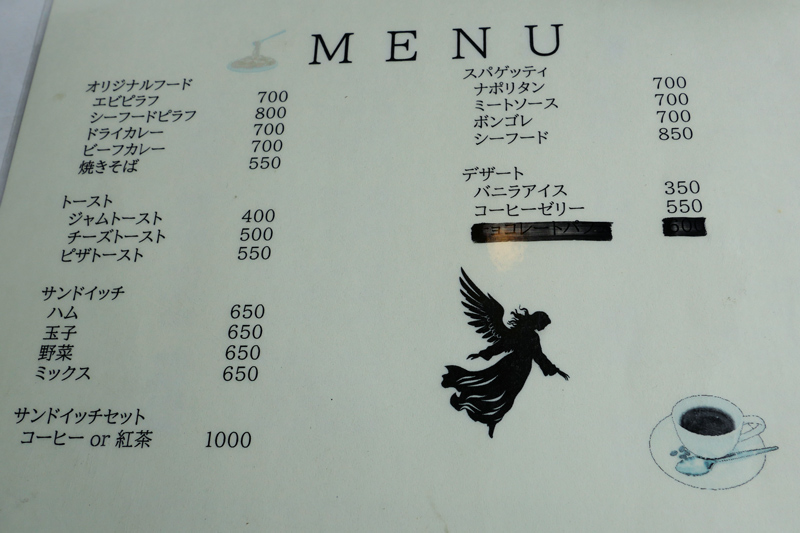 MENU
オリジナルフード
エビピラフ 700
シーフードピラフ 800
ドライカレー 700
ビーフカレー 700
焼きそば 550
トースト
ジャムトースト 400
チーズトースト 500
ピザトースト 550
サンドイッチ
ハム 650
玉子 650
野菜 650
ミックス 650
サンドイッチセット
コーヒー or 紅茶 1000
スパゲッティ
ナポリタン 700
ミートソース 700
ボンゴレ 700
シーフード 850
デザート
バニラアイス 350
コーヒーゼリー 550